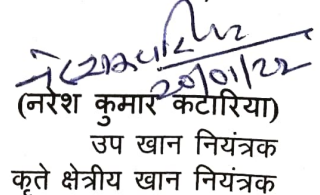 20/01/22
(नरेश कुमार कटारिया)
उप खान नियंत्रक
कृते क्षेत्रीय खान नियंत्रक